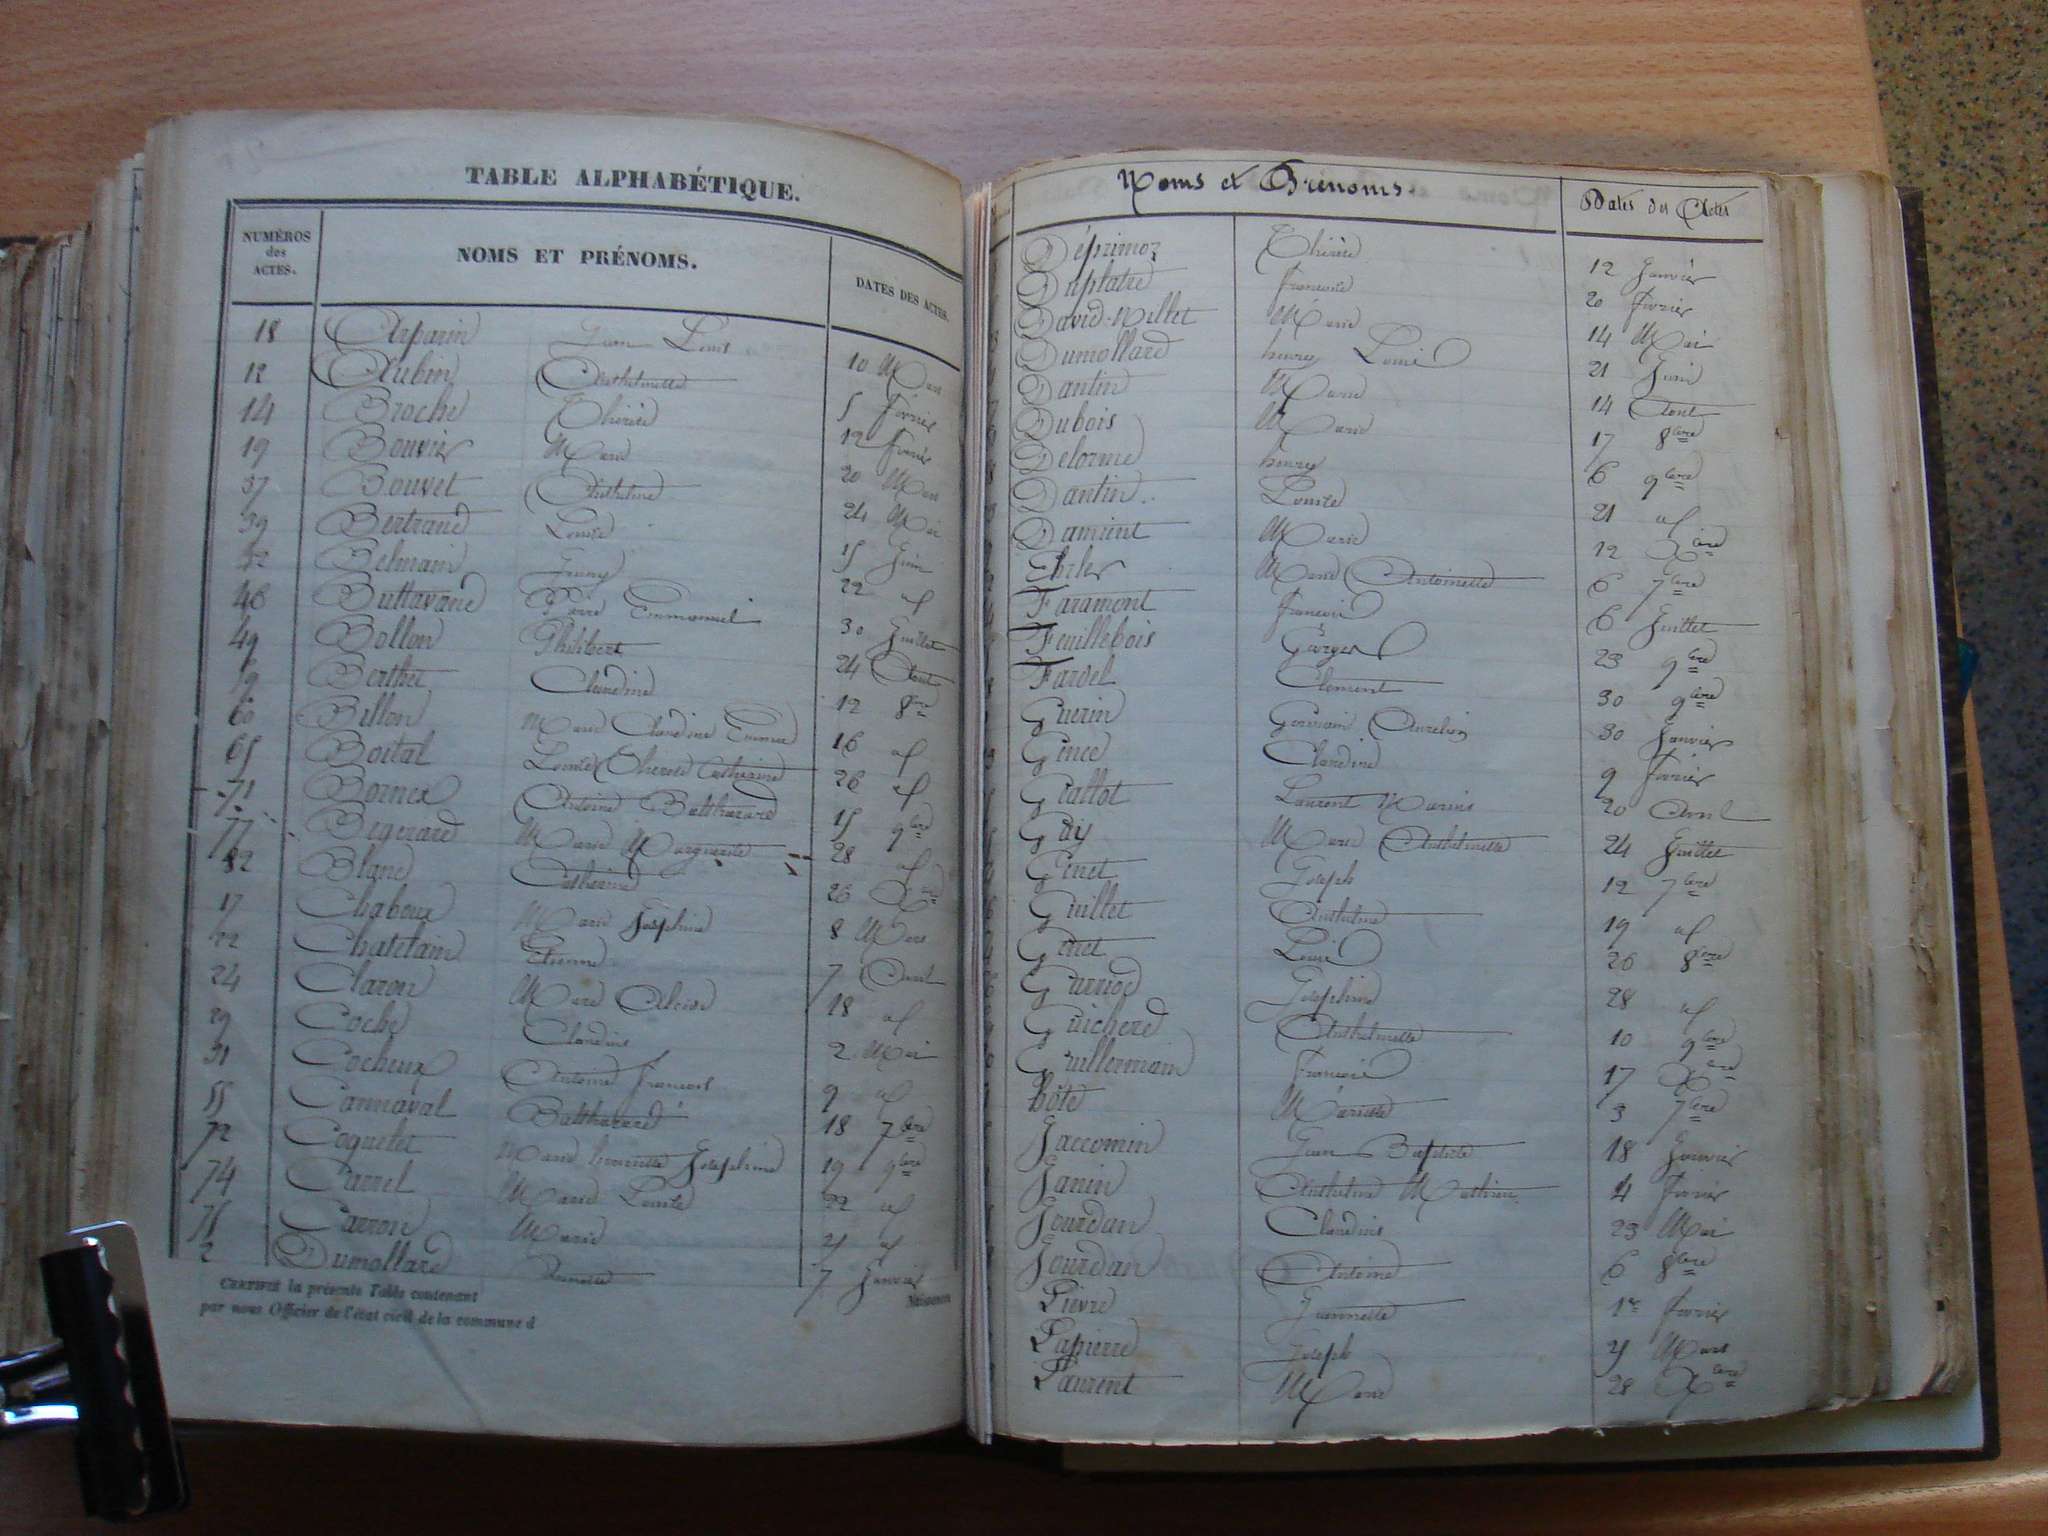 TABLE ALPHABÉTIQUE.
NUMÉROS des ACTES. NOMS ET PRÉNOMS. DATES DES ACTES.
18 Arparin Jean Louis 10 Mars
12 Aubin Anthelmette 5 Février
14 Broche Thérèse 12 Février
19 Bouvier Marie 20 Mars
37 Bouvet Anthelme 24 Mai
39 Bertrand Louise 15 Juin
Belmain Jenny 22 id
46 Buttavand Pierre Emmanuel 30 Juillet
49 Bollon Philibert 24 Aout
59 Berthet Claudine 12 8bre
60 Billon Marie Claudine Emma 16 id
65 Boital Louise Thérèse Catherine 26 id
71 Bornex Antoine Balthazard 15 9bre
77 Begerard Marie Marguerite 28 id
82 Blanc Catherine 26 Xbre
17 Chaboux Marie Joséphine 8 Mars
22 Chatelain Etienne 7 Avril
24 Claron Marie 18 id
29 Coche Claudius 2 Mai
31 Cocheux Antoine François 9 id
55 Cannaval Balthazard 18 7bre
72 Coquelet Marie henriette Joséphine 19 9bre
74 Curvel Marie Louise 22 id
75 Carron Marie 25 id
2 Dumollard 7 Janvier
CERTIFIÉ la présente Table contenant
par nous Officier de l'état civil de la commune d
Noms et Prénoms Dates des Actes
Déprimoz Thérèse 12 Janvier
Duplatre Françoise 20 Février
David-Millet Marie 14 Mai
Dumollard henry Louis 21 Juin
Dantin Marie 14 Aout
Dubois Marie 17 8bre
Delorme henry 6 9bre
Dantin Louise 21 id
Damient Marie 12 Xbre
Ehrler Marie Antoinette 6 7bre
Faramont François 6 Juillet
Feuillebois Georges 23 9bre
Fardel Clement 30 9bre
Guerin Germain Aurelien 30 Janvier
Gince Claudine 9 Février
Gallot Laurent Marius 20 Avril
Goy Marie Anthelmette 24 Juillet
Genet Joseph 12 7bre
Guillet Anthelme 19 id
Genet Louis 26 8bre
Gurriod Joséphine 28 id
Guicherd Anthelmette 10 9bre
Guillermain François 17 Xbre
hôte Mariette 3 7bre
Jaccomin Jean Baptiste 18 Janvier
Janin Anthelme Mathieu 4 Février
Jourdan Claudius 23 Mai
Jourdan Antoine 6 8bre
Lievre Jeannette 1er Février
Lapierre Joseph 25 Mars
Laurent Marie 28 Xbre